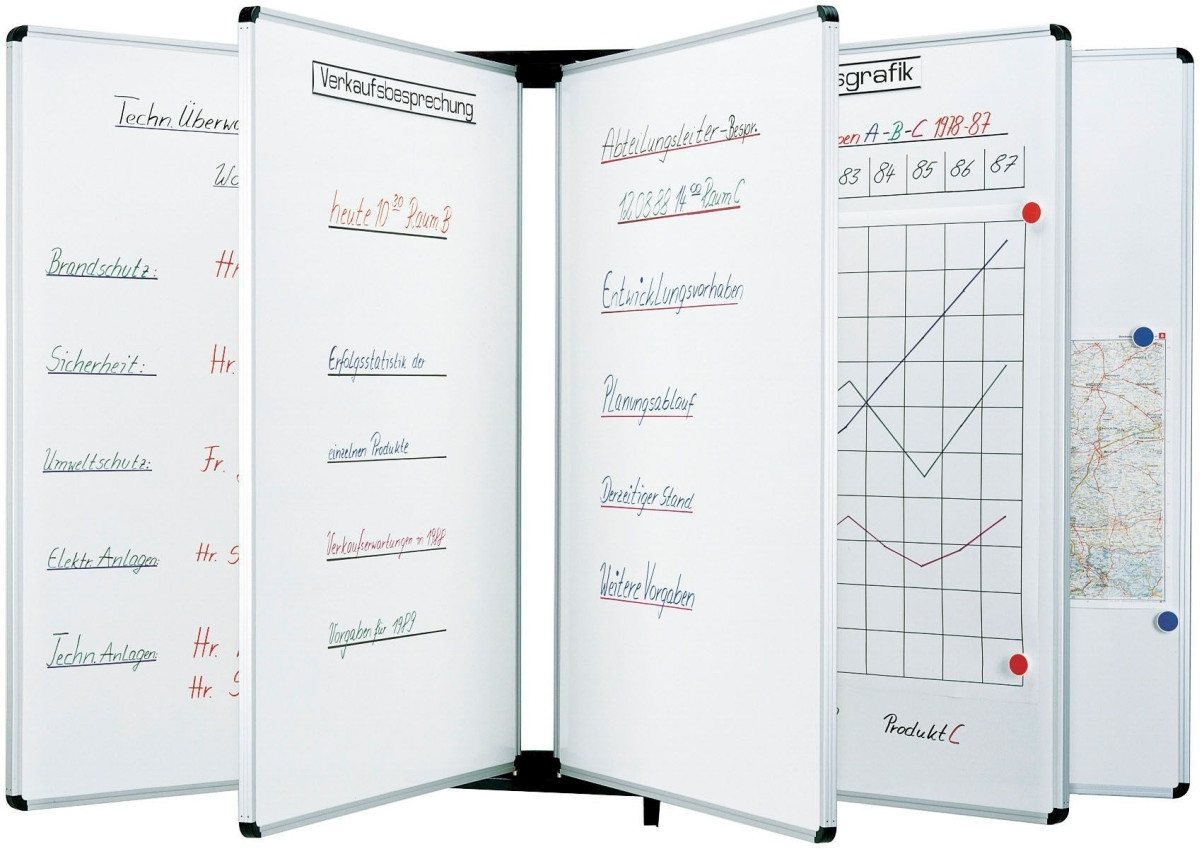 Techn. Überwa
Wo
Brandschutz: Hr
Sicherheit: Hr.
Umweltschutz: Fr.
Elektr. Anlagen: Hr. S
Techn. Anlagen: Hr.
Hr. S
Verkaufsbesprechung
heute 10 30 Raum B
Erfolgsstatistik der
einzelnen Produkte
Verkaufserwartungen in 1988
Vorgaben für 1989
Abteilungsleiter-Bespr.
12.08.88 14 00 Raum C
Entwicklungsvorhaben
Planungsablauf
Derzeitiger Stand
Weitere Vorgaben
sgrafik
pen A-B-C 1978-87
83 84 85 86 87
Produkt C